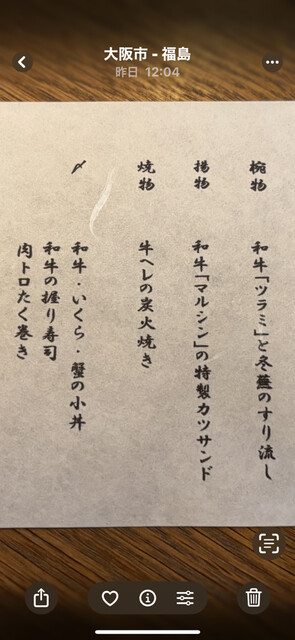 大阪市 - 福島
昨日 12:04
椀物
和牛「ツラミ」と冬蕪のすり流し
揚物
和牛「マルシン」の特製カツサンド
焼物
牛ヘレの炭火焼き
〆
和牛・いくら・蟹の小丼
和牛の握り寿司
肉トロたく巻き